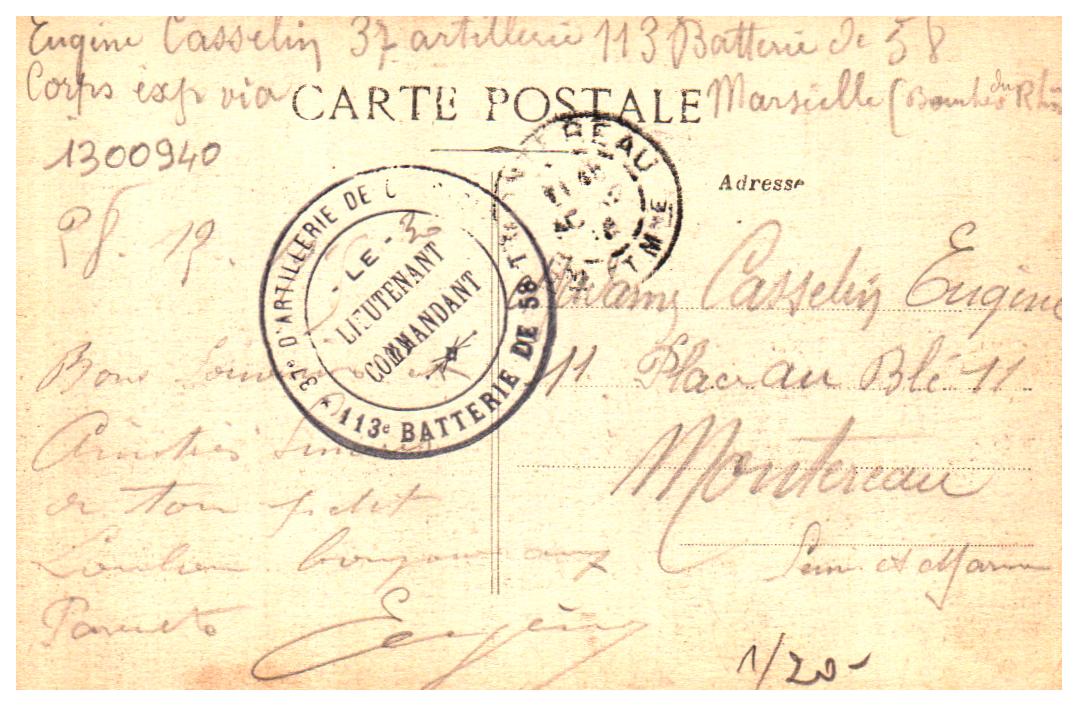 Eugène Casselin 37 artillerie 113 Batterie de 58
Corps exp via Marseille (Bouches du Rhô
CARTE POSTALE
1300940
Adresse
37e D'ARTILLERIE DE
113e BATTERIE DE 58
- LE -
LIEUTENANT
COMMANDANT
EREAU
ET MNE
Madame Casselin Eugène
11 Place au Blé 11
Montereau
Seine et Marne
Bons
Amitiés
de ton petit
bonjour aux
Parents
Eugène
1/20-